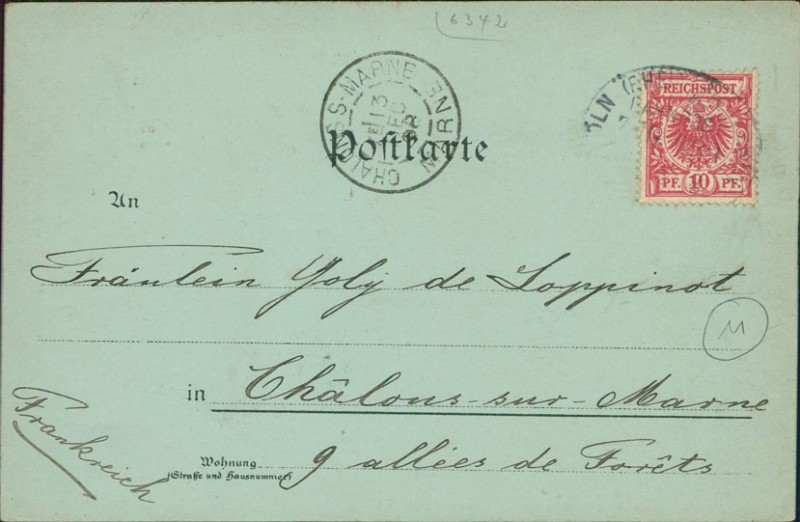 6342
CHALONS-S-MARNE
MARNE
13
REICHSPOST
PF. 10 PF.
Postkarte
An
Fräulein Joly de Loppinot
M
in Châlons-sur-Marne
Frankreich
Wohnung
(Straße und Hausnummer)
9 allées de Forêts